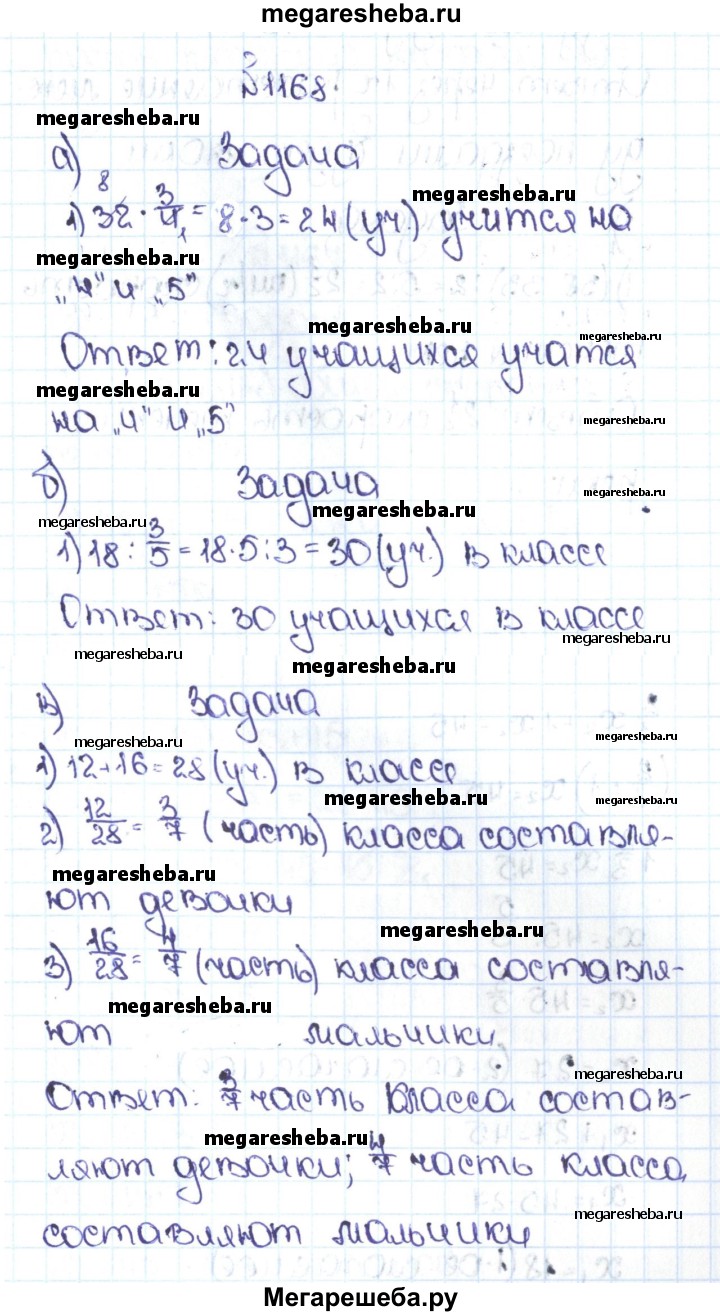 megaresheba.ru
№1168.
megaresheba.ru
а) Задача
8
1) 32 · 3/4 1 = 8 · 3 = 24 (уч.) учится на
megaresheba.ru
megaresheba.ru
„4" и „5"
megaresheba.ru
megaresheba.ru
Ответ: 24 учащихся учатся
megaresheba.ru
на „4" и „5"
megaresheba.ru
б) Задача
megaresheba.ru
megaresheba.ru
megaresheba.ru
1) 18 : 3/5 = 18 · 5 : 3 = 30 (уч.) в классе
Ответ: 30 учащихся в классе
megaresheba.ru
megaresheba.ru
megaresheba.ru
в) Задача
megaresheba.ru
megaresheba.ru
1) 12 + 16 = 28 (уч.) в классе
megaresheba.ru
megaresheba.ru
2) 12/28 = 3/7 (часть) класса составля-
megaresheba.ru
ют девочки
megaresheba.ru
3) 16/28 = 4/7 (часть) класса составля-
megaresheba.ru
ют мальчики
megaresheba.ru
Ответ: 3/7 часть класса состав-
megaresheba.ru
ляют девочки; 4/7 часть класса
megaresheba.ru
составляют мальчики
Мегарешеба.ру